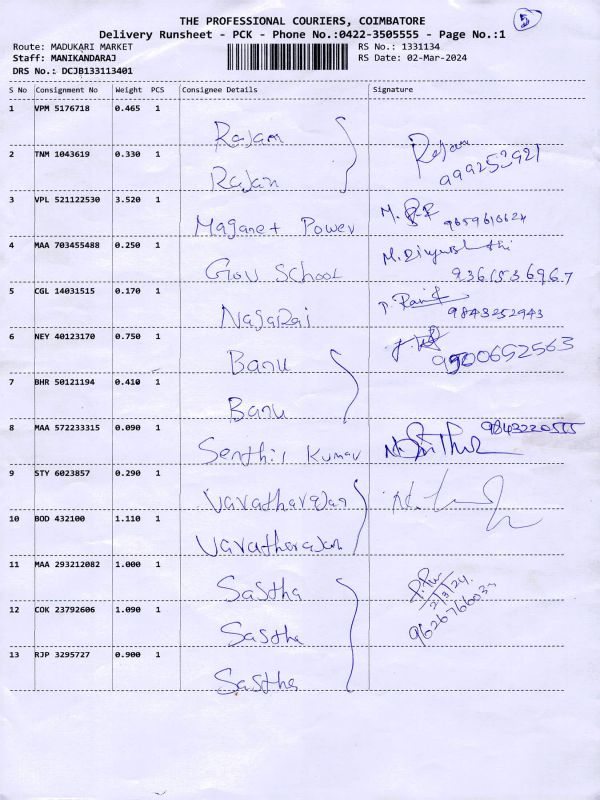 THE PROFESSIONAL COURIERS, COIMBATORE
5
Delivery Runsheet - PCK - Phone No.:0422-3505555 - Page No.:1
Route: MADUKARI MARKET RS No.: 1331134
Staff: MANIKANDARAJ RS Date: 02-Mar-2024
DRS No.: DCJB133113401
S No Consignment No Weight PCS Consignee Details Signature
1 VPM 5176718 0.465 1
Rajan Rajan
2 TNM 1043619 0.330 1 999253921
Rajan
3 VPL 521122530 3.520 1
Maganet Power M. 9659610624
4 MAA 703455488 0.250 1 M.
Gov School 9361536967
5 CGL 14031515 0.170 1
Nagaraj 9843252943
6 NEY 40123170 0.750 1
Banu 9900652563
7 BHR 50121194 0.410 1
Banu
8 MAA 572233315 0.090 1 9843220555
Senthil Kumar
9 STY 6023857 0.290 1
Varatharajan
10 BOD 432100 1.110 1
Varatharajan
11 MAA 293212082 1.000 1
Sastha
2/3/24
12 COK 23792606 1.090 1
Sastha
13 RJP 3295727 0.900 1
Sastha